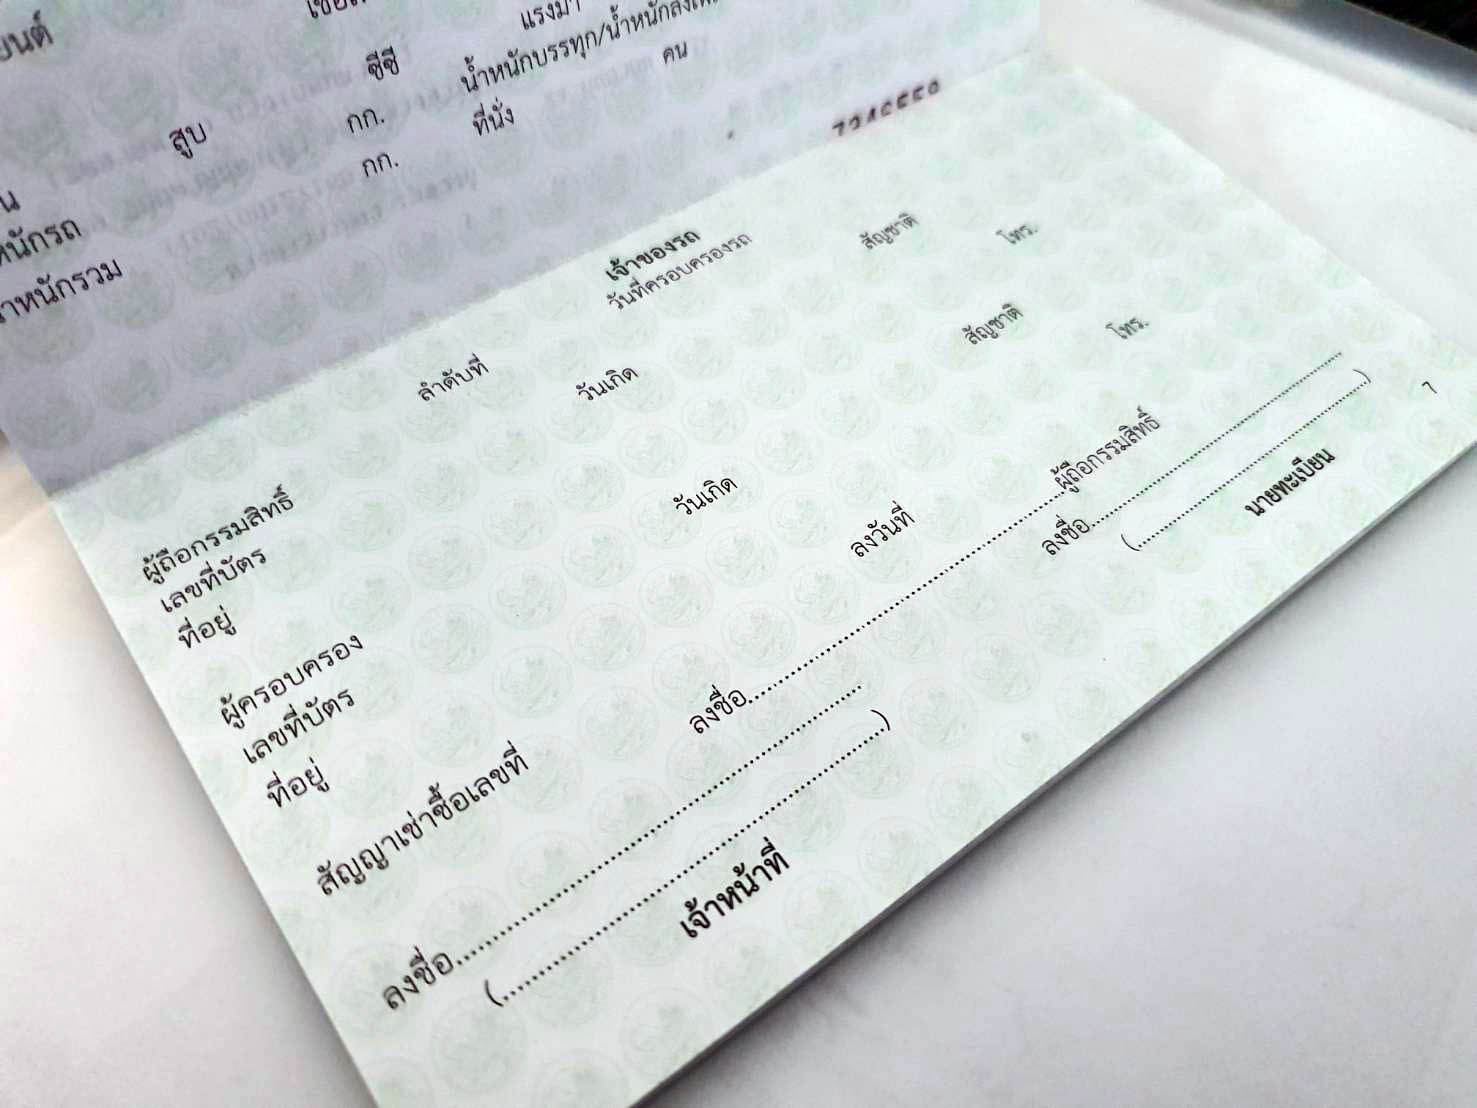 สูบ ซีซี แรงม้า
กก. น้ำหนักบรรทุก/น้ำหนักลงเพลา
กก. ที่นั่ง คน
เจ้าของรถ
ลำดับที่ วันที่ครอบครองรถ
ผู้ถือกรรมสิทธิ์
เลขที่บัตร วันเกิด สัญชาติ
ที่อยู่ โทร.
ผู้ครอบครอง
เลขที่บัตร วันเกิด สัญชาติ
ที่อยู่ โทร.
สัญญาเช่าซื้อเลขที่ ลงวันที่
ลงชื่อ..........ผู้ถือกรรมสิทธิ์
ลงชื่อ.......... ลงชื่อ..........
(..........) (..........)
เจ้าหน้าที่ นายทะเบียน